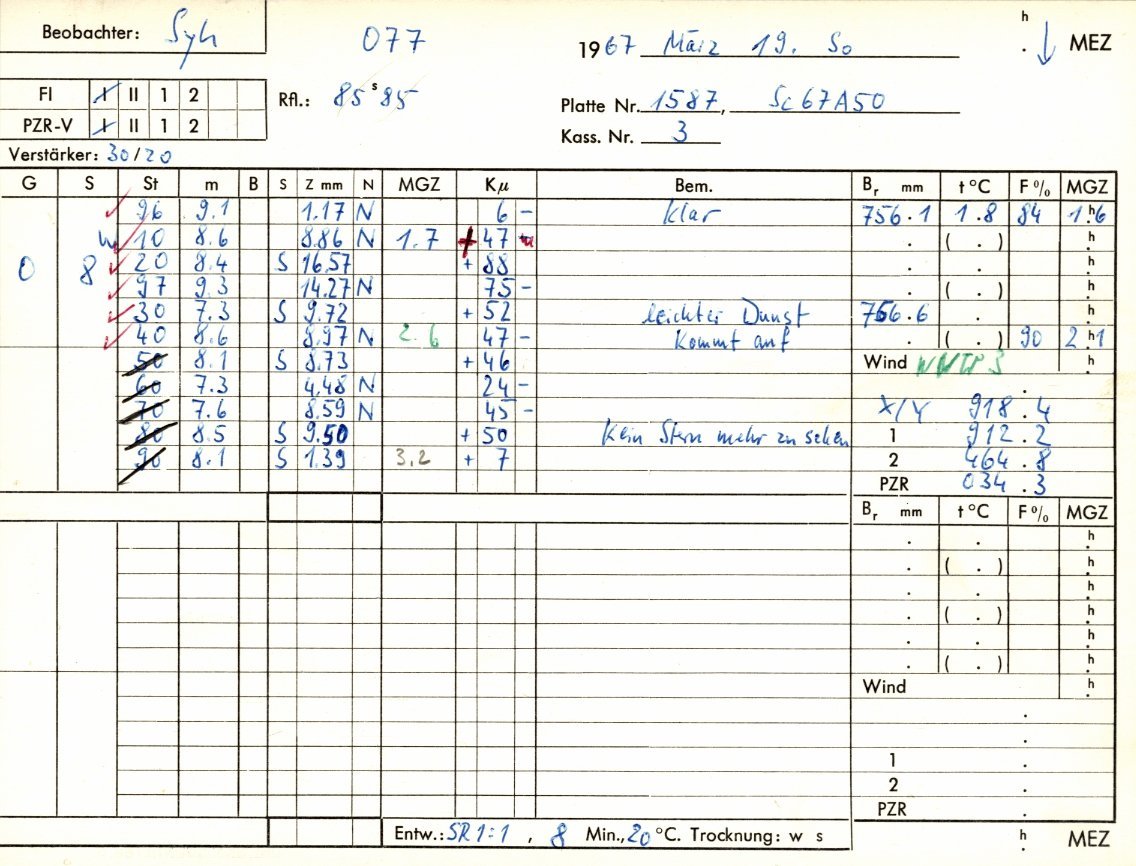 Beobachter: Syh 077 1967 März 19. So h . ↓ MEZ
FI I II 1 2 Rfl.: 85 s 85 Platte Nr. 1587, Sc67A50
PZR-V I II 1 2 Kass. Nr. 3
Verstärker: 30/20
G S St m B S Z mm N MGZ Kμ Bem. Br mm t °C F% MGZ
96 9.1 1.17 N 6 - klar 756.1 1.8 84 1.h6
10 8.6 8.86 N 1.7 + 47 . ( . ) .h
0 8 20 8.4 S 16.57 + 88 . . .h
97 9.3 14.27 N 75 - . ( . ) .h
30 7.3 S 9.72 + 52 leichter Dunst 756.6 . .h
40 8.6 8.97 N 2.6 47 - kommt auf . ( . ) 90 2.h1
50 8.1 S 8.73 + 46 Wind .h
60 7.3 4.48 N 24 - .
70 7.6 8.59 N 45 - X/Y 918.4
80 8.5 S 9.50 + 50 Kein Stern mehr zu sehen 1 912.2
90 8.1 S 1.39 3.2 + 7 2 464.8
PZR 034.3
Br mm t °C F% MGZ
. . .h
. ( . ) .h
. . .h
. ( . ) .h
. . .h
. ( . ) .h
Wind .h
.
.
1 .
2 .
PZR .
Entw.: SR 1:1, 8 Min., 20 °C. Trocknung: w s h . MEZ